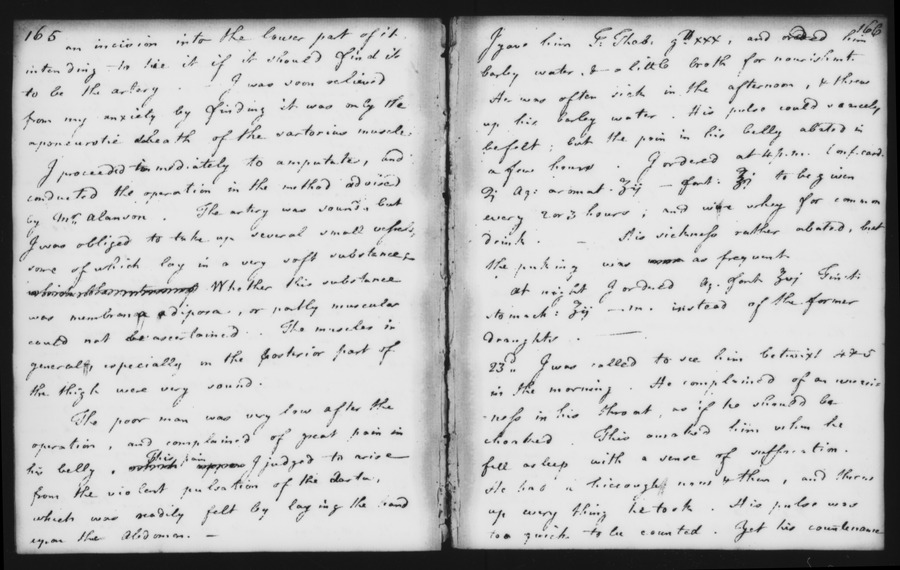 165
an incision into the lower part of it
intending to tie it if it should find it
to be the artery. I was soon relieved
from my anxiety by finding it was only the
aponeurotic sheath of the sartorius muscle.
I proceeded immediately to amputate, and
conducted the operation in the method advised
by Mr. Alanson. The artery was sound but
I was obliged to take up several small vessels,
some of which lay in a very soft substance
Whether this substance
was membrana adiposa, or partly muscular
could not be ascertained. The muscles in
general, especially in the posterior part of
the thigh were very sound.
The poor man was very low after the
operation, and complained of great pain in
his belly, This pain I judged to arise
from the violent pulsation of the Aorta,
which was readily felt by laying the hand
upon the Abdomen. —
166
I gave him T. Thab. gtt xxx, and ordered him
barley water & a little broth for nourishment.
He was often sick in the afternoon, & threw
up his barley water. His pulse could scarcely
be felt; but the pain in his belly abated in
a few hours. I ordered at 4 p.m. Conf. card.
Aq: aromat. — fort. to be given
every 2 or 3 hours; and wine whey for common
drink. — His sickness rather abated, but
the puking was as frequent.
At night I ordered Aq. fort Tinct:
stomach: — instead of the former
draughts. —
23d. I was called to see him betwixt 4 & 5
in the morning. He complained of an uneasi
-ness in his throat, as if he should be
choaked. This awaked him when he
fell asleep with a sense of suffocation.
He had a hiccough now & then, and threw
up every thing he took. His pulse was
too quick to be counted. Yet his countenance